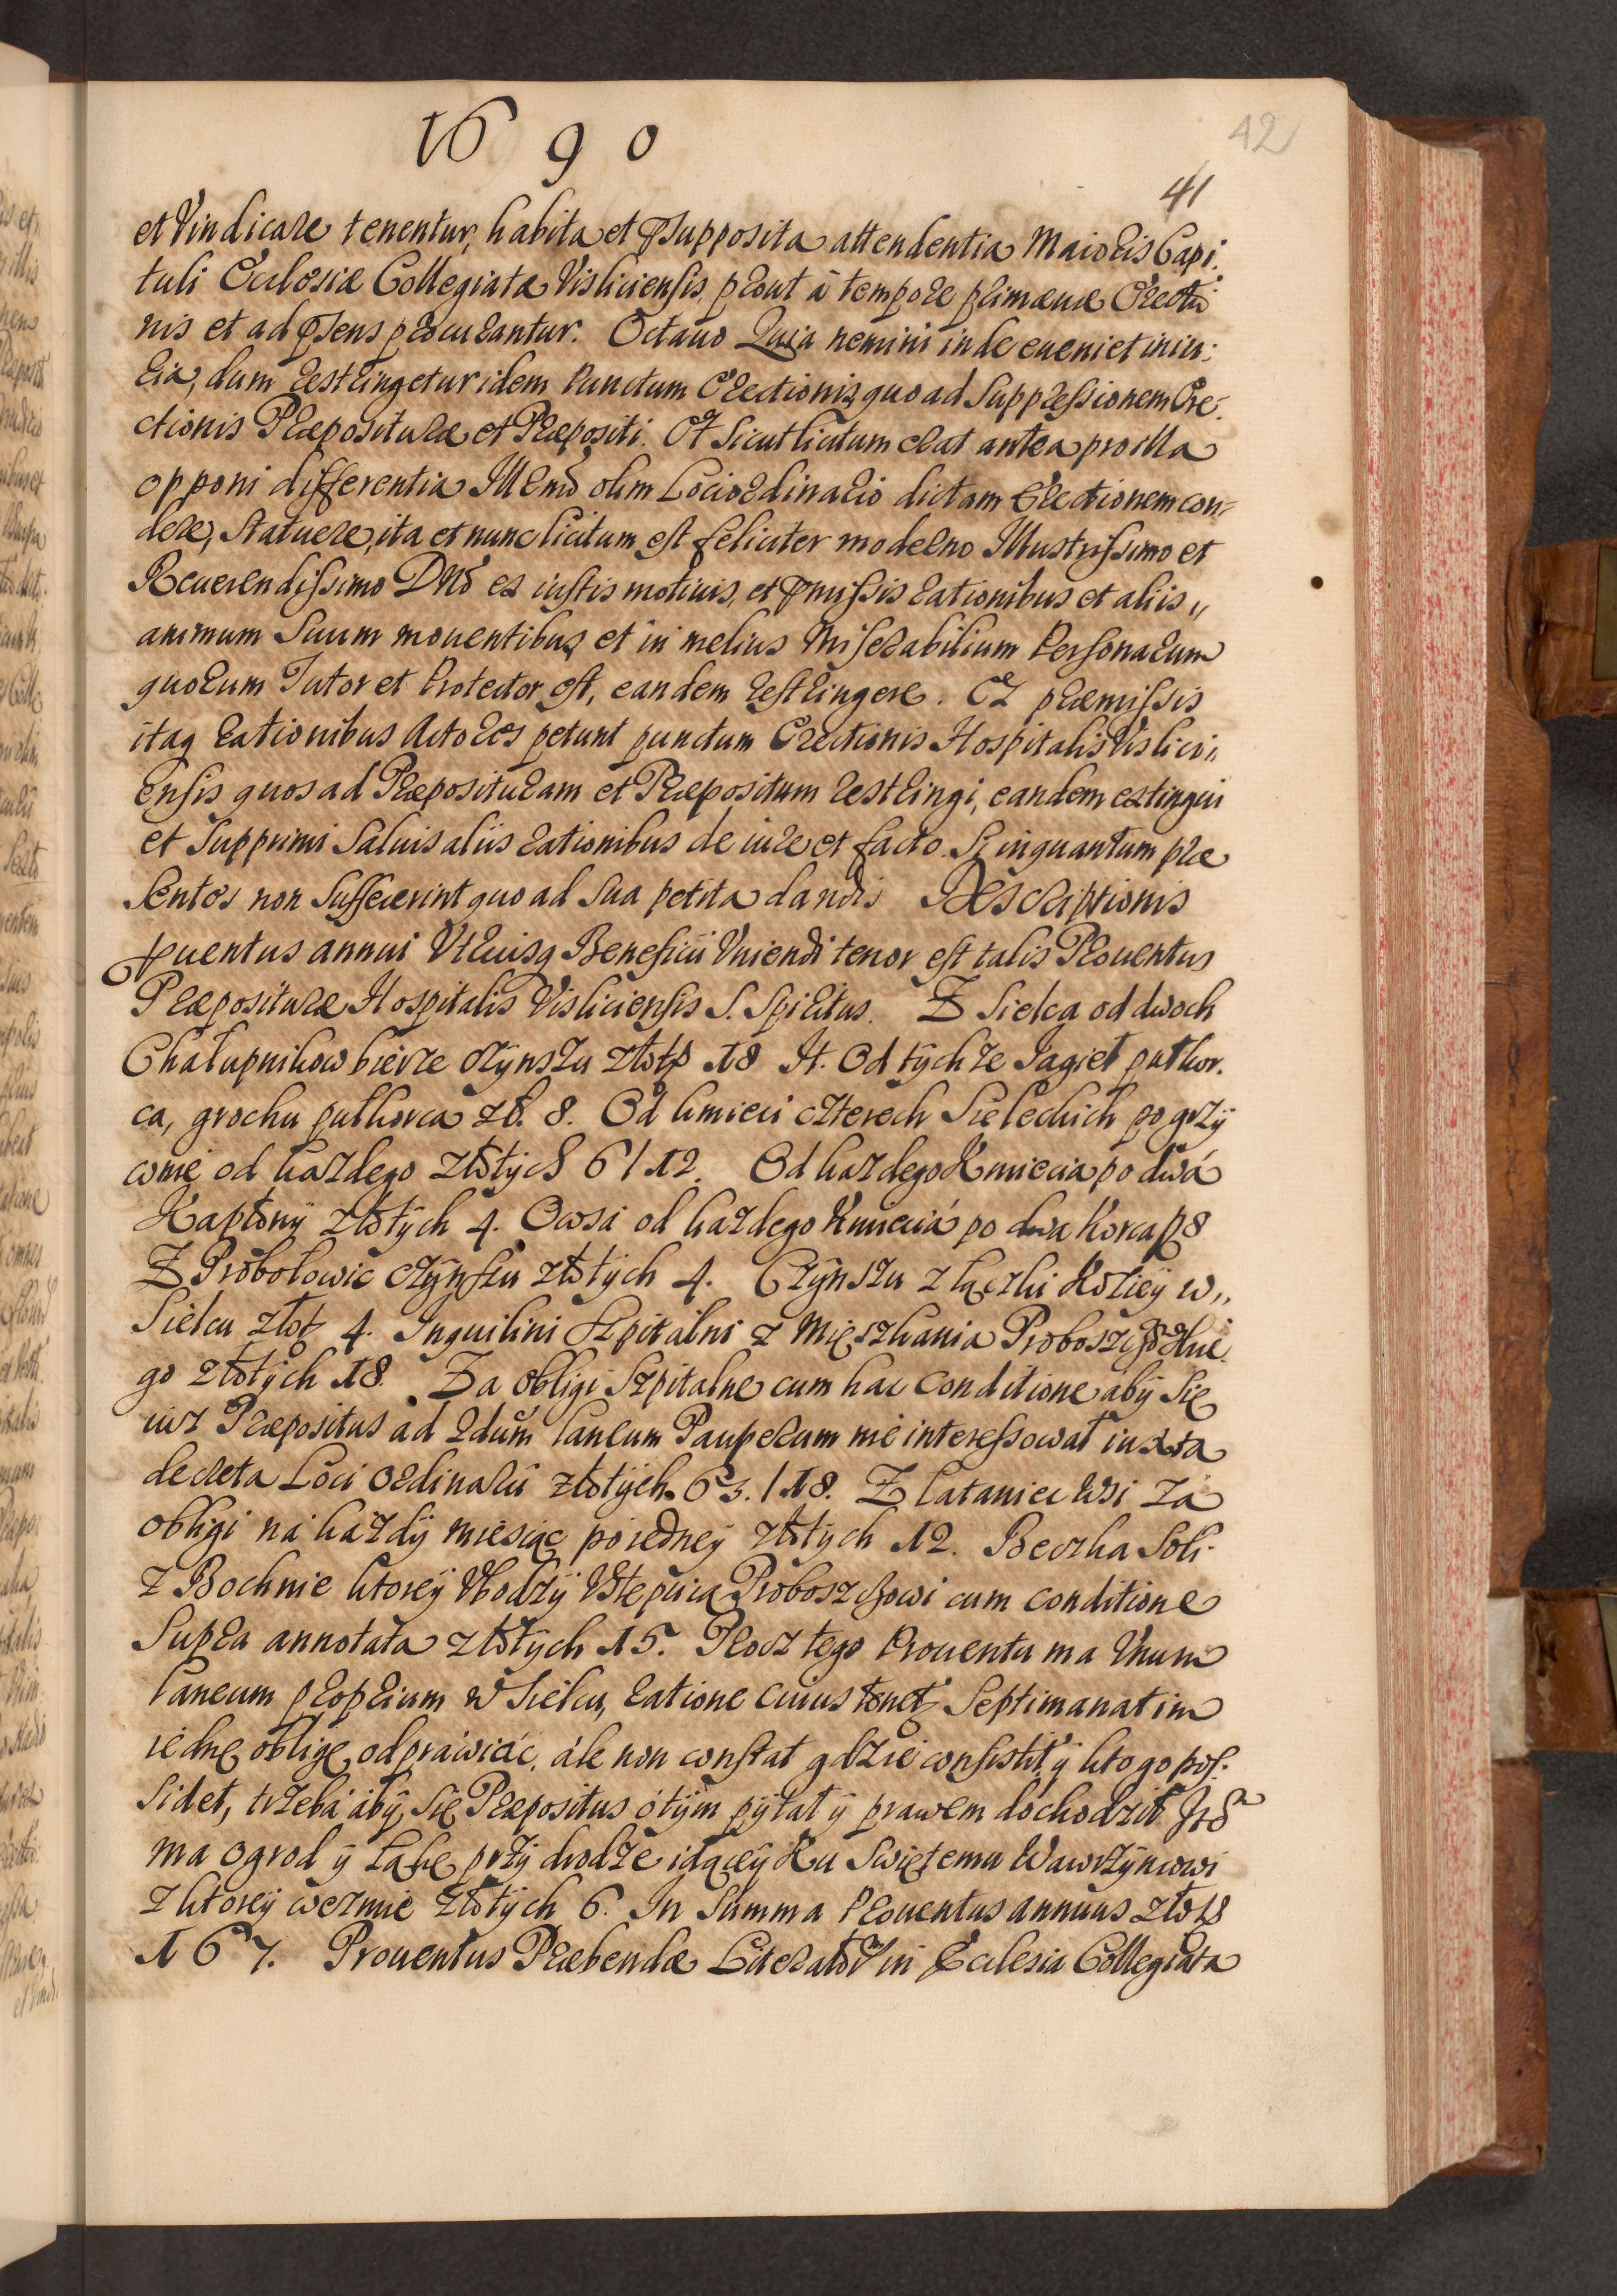 1690
42
41
et Vindicare tenentur, habita et psupposita attendentia Maioris Capi:
tuli Ecclesiæ Collegiatæ Visliciensis, prout à tempore primæuæ Erectio
nis et ad psens procurantur. Octauo Quia nemini inde eueniet iniu:
ria, dum restringetur idem Punctum Erectionis quoad Suppressionem Ere:
ctionis Præpositurae et Præpositi. Et Sicut licitum erat antea pro illa
opponi differentia Illrmo olim Lociordinario dictam Erectionem con=
dere, Statuere, ita et nunc licitum est feliciter moderno Illustrissimo et
Reuerendissimo Dno ex iustis motiuis, et pmissis rationibus et aliis
animum Suum mouentibus, et in melius Miserabilium Personarum
quorum Tutor et Protector est, eandem restringere. Ex præmissis
itaq rationibus Actores petunt punctum Erectionis Hospitalis Vislici„
ensis quoad Præposituram et Præpositum restringi, eandem extingui
et Supprimi Saluis aliis rationibus de iure et facto Si inquantum præ
sentes non suffecerint quoad Sua petita dandis Descriptionis
puentus annui Vtriusq Beneficii Vniendi tenor est talis Prouentus
Præposituræ Hospitalis Visliciensis S. Spiritus. Z Sielca od dwoch
Chałupnikow bierze czynszu złotp 18 It. Od tychże Jagieł pułkor.
ca, grochu pułkorca zł. 8. Od kmieci czterech Sieleckich po grzy
wnie od każdego złotych 6/12. Od każdego Kmiecia po dwá
Kapłony złotych 4. Owsá od każdego Kmieciá po dwa Korca 8
Z Probołowic czynszu złotych 4. Czynszu z łączki Koziey w„
Sielcu złot 4. Inquilini Szpitálni z Mięszkania
go złotych 18. Za obligi Szpitalne cum hac conditione aby Się
iusz Præpositus ad laneum Pauperum nie interessował iuxta
decreta Loci ordinarii złotych 63./18. Z Łataniec Wsi zá
obligi ná każdy miesiąc po iedney złotych 12. Beczka Soli
z Bochnie ktorey Vstępuią Proboszczowi cum conditione
Supra annotata złotych 15. Procz tego Prouentu ma Vnum
laneum proprium w Sielcu, ratione cuius tenet Septimanatim
iednę obligę odprawić, ále non constat gdzie consistit y kto go pos:
sidet, trzeba áby Się Præpositus o tym pytał y prawem dochodził
ma ogrod y Łąkę przy drodze idącey Ku Swiętemu Wawrzyńcowi
z ktorey wezmie złotych 6. In Summa Prouentus annuus złot
167. Prouentus Præbendæ Literator in Ecclesia Collegiata